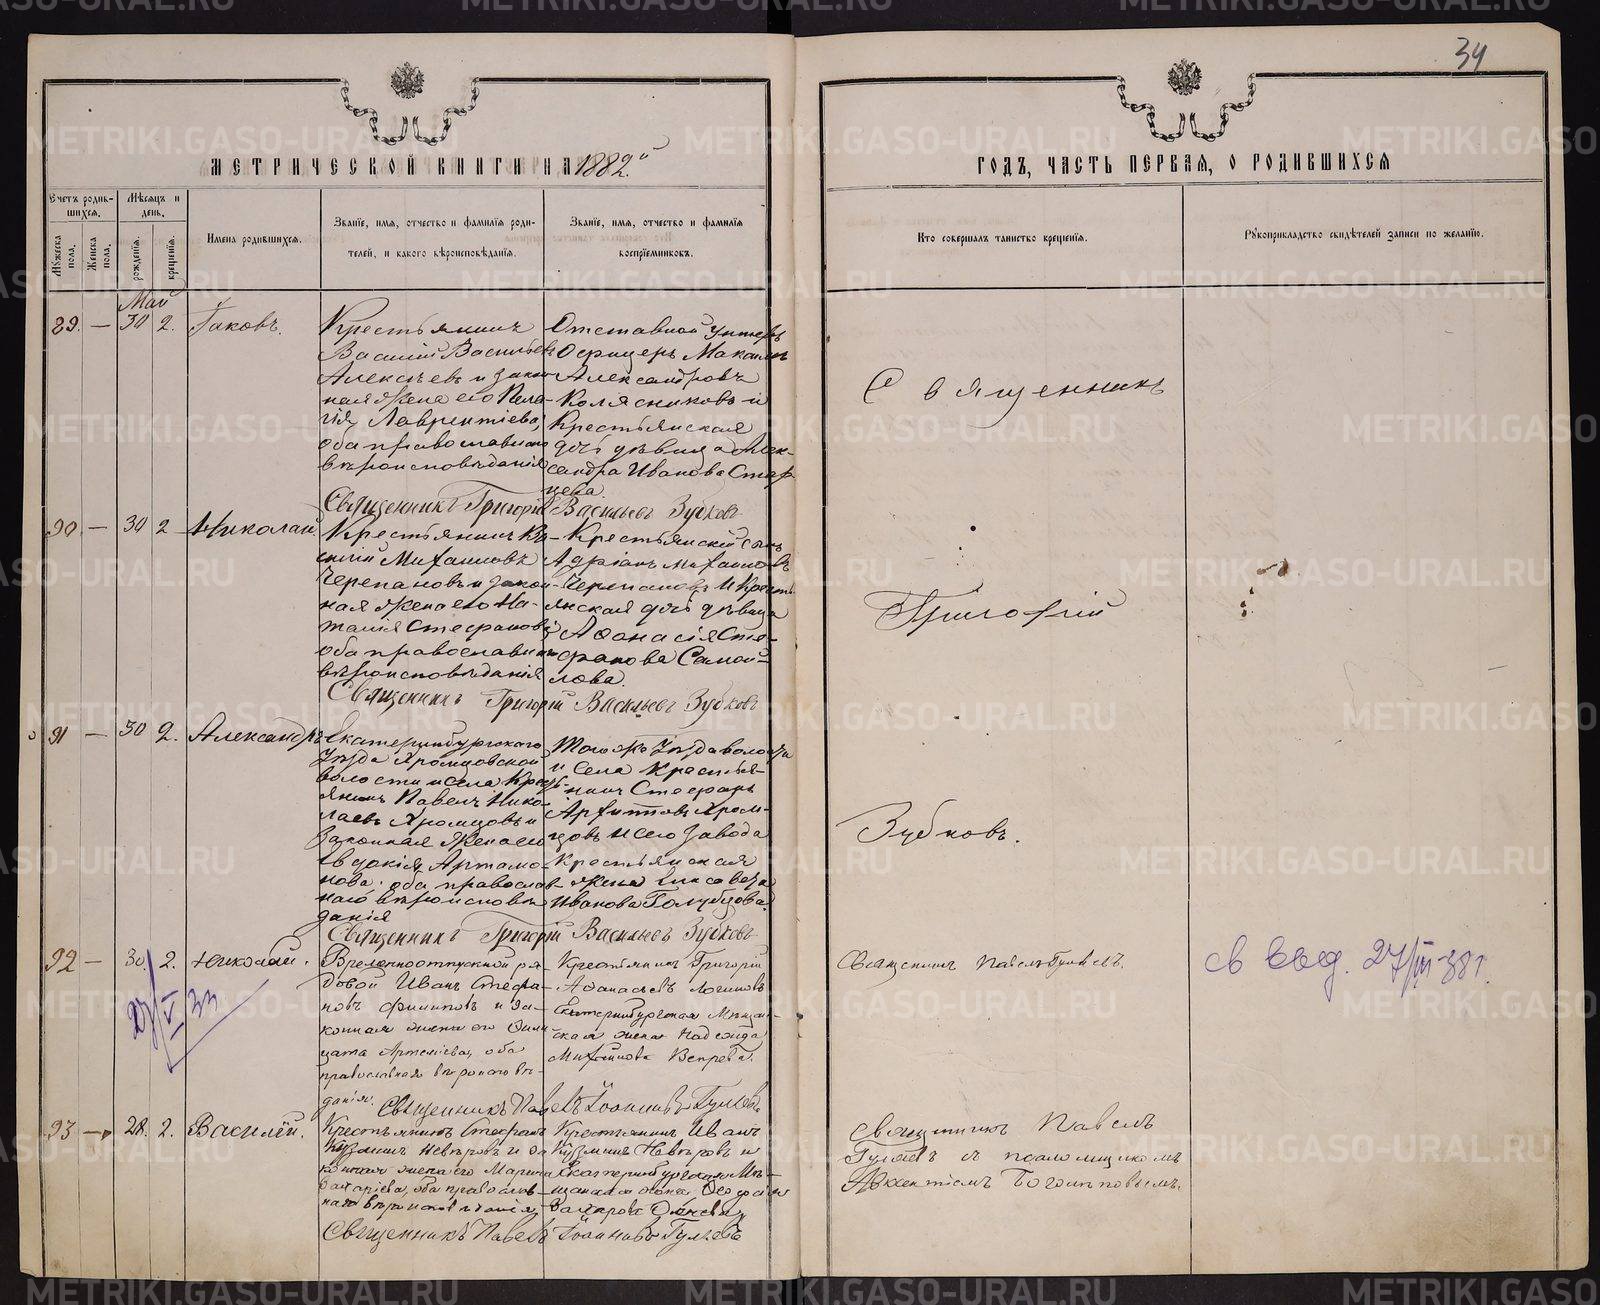 34
МЕТРИЧЕСКОЙ КНИГИ НА 1882й
ГОДЪ, ЧАСТЬ ПЕРВАЯ, О РОДИВШИХСЯ
Счетъ родив-
шихся.
Мѣсяцъ и
день.
Мужеска
пола.
Женска
пола.
рожденія.
крещенія.
Имена родившихся.
Званіе, имя, отчество и фамилія роди-
телей, и какого вѣроисповѣданія.
Званіе, имя, отчество и фамилія
воспріемниковъ.
Кто совершалъ таинство крещенія.
Рукоприкладство свидѣтелей записи по желанію.
Май
89. — 30 2. Іаковъ.
Крестьянинъ
Василій Васильевъ
Алексѣевъ и закон
ная жена его Пела-
гія Лаврентіева,
оба православнаго
вѣроисповѣданія
Отставной унтеръ
Офицеръ Максимъ
Александровъ
Колясниковъ и
Крестьянская
дочь дѣвица Алек-
сандра Иванова Стар
цева.
Священникъ Григорій Васильевъ Зубковъ
90 — 30 2 Николай
Крестьянинъ Ва-
силій Михаиловъ
Черепановъ и закон-
ная жена его На-
талія Стефанова
оба православнаго
вѣроисповѣданія
Крестьянскій сынъ
Адріанъ Михаиловъ
Черепановъ и Кресть
янская дочь дѣвица
Афанасія Сте-
фанова Самой-
лова.
Священникъ Григорій Васильевъ Зубковъ
91 — 30 2. Александръ
Екатеринбургскаго
Уѣзда Аромцовской
волости и села Кресть-
янинъ Павелъ Нико-
лаевъ Хромцовъ и
Законная жена его
Евдокія Артамо-
нова, оба православ-
наго вѣроисповѣ
данія
Того жъ Уѣзда волости
и села Крестья-
нинъ Стефанъ
Архиповъ Хром-
цовъ и сего завода
Крестьянская
жена Елисавета
Иванова Голубцова.
Священникъ Григорій Васильевъ Зубковъ
Священникъ
Григорій
Зубковъ.
92 — 30. 2. Николай.
27/V 33
Временноотпускной ря-
довой Иванъ Стефа-
новъ Филиповъ и за-
конная жена его
Артемьева, оба
православнаго вѣроисповѣ-
данія.
Крестьянинъ Григорій
Афанасьевъ Логиновъ
Екатеринбургская Мѣщан-
ская жена Надежда
Михаилова Вепрева.
Священникъ Павелъ Іоанновъ Гуляевъ
Священникъ Павелъ Гуляевъ.
св выд. 27/III-38 г.
93 — 28. 2. Василій.
Крестьянинъ Стефанъ
Кузминъ Невѣровъ и за
конная жена его Марина
Захаріева, оба православ-
наго вѣроисповѣданія
Крестьянинъ Иванъ
Кузминъ Невѣровъ и
Екатеринбургская Мѣ-
щанская жена
Священникъ Павелъ Іоанновъ Гуляевъ
Священникъ Павелъ
Гуляевъ съ псаломщикомъ
Авксентіемъ Боголѣповымъ.
METRIKI.GASO-URAL.RU